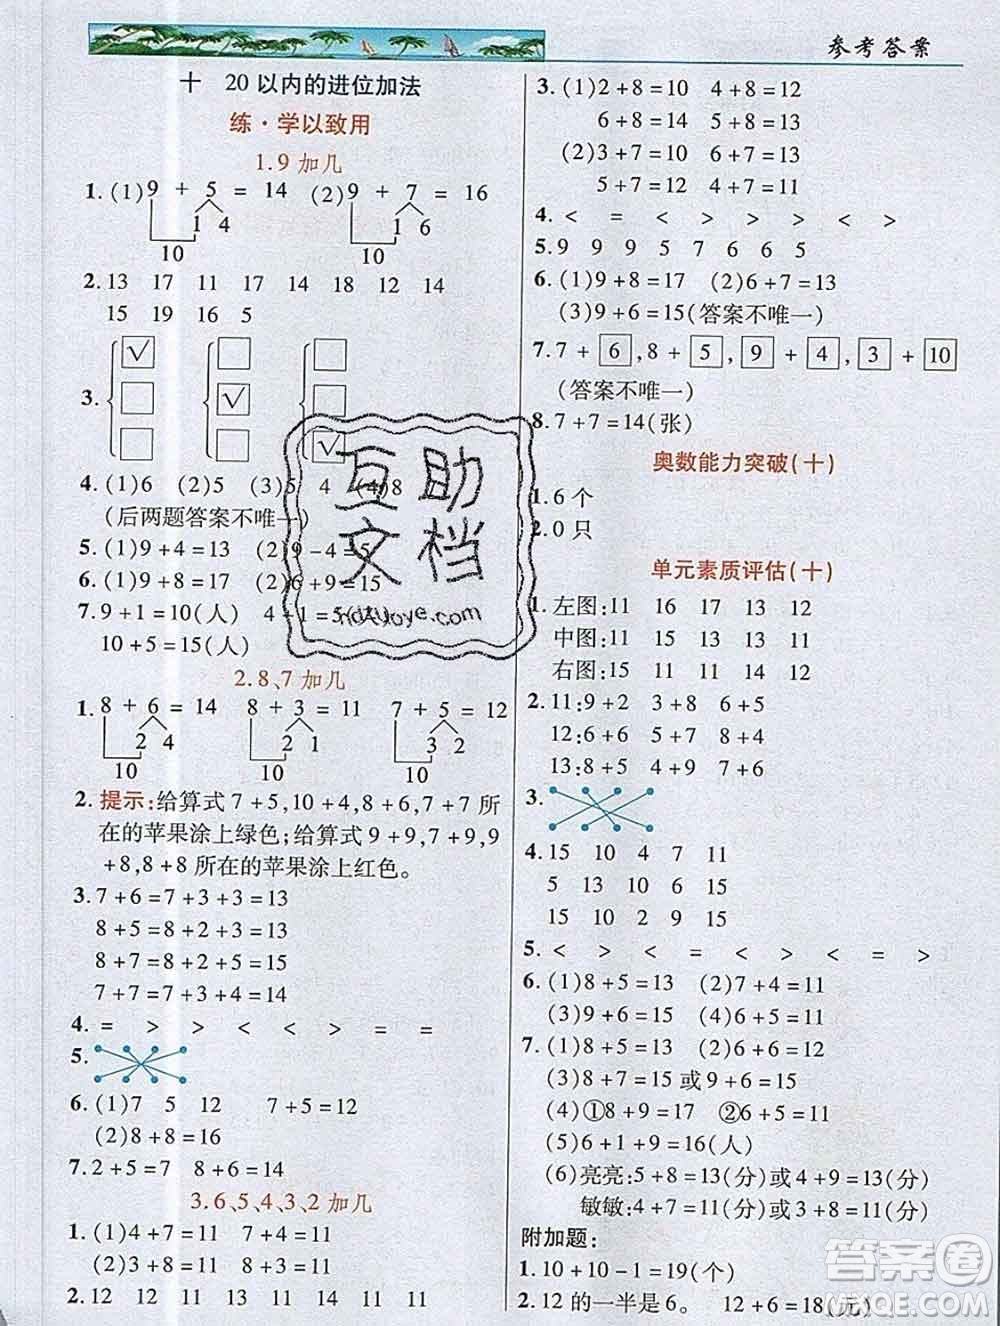 参考答案
十 20以内的进位加法
练·学以致用
1.9加几
1. (1)9 + 5 = 14 (2)9 + 7 = 16
1 4 1 6
10 10
2. 13 17 11 17 14 18 12 14
15 19 16 5
3. √ √ √
4. (1)6 (2)5 (3)5 4 (4)8
(后两题答案不唯一)
5. (1)9+4=13 (2)9-4=5
6. (1)9+8=17 (2)6+9=15
7. 9+1=10(人) 4+1=5
10+5=15(人)
2.8、7加几
1. 8 + 6 = 14 8 + 3 = 11 7 + 5 = 12
2 4 2 1 3 2
10 10 10
2. 提示:给算式7+5,10+4,8+6,7+7所
在的苹果涂上绿色;给算式9+9,7+9,9
+8,8+8所在的苹果涂上红色。
3. 7+6=7+3+3=13
8+5=8+2+3=13
8+7=8+2+5=15
7+7=7+3+4=14
4. = > > < < > = =
5.
6. (1)7 5 12 7+5=12
(2)8+8=16
7. 2+5=7 8+6=14
3.6、5、4、3、2加几
1. (1)4+7=11 7+4=11
(2)3+8=11 8+3=11
2. 12 12 11 11 11 13 11
3. (1)2+8=10 4+8=12
6+8=14 5+8=13
(2)3+7=10 6+7=13
5+7=12 4+7=11
4. < = < > > > < >
5. 9 9 9 5 7 6 6 5
6. (1)9+8=17 (2)6+7=13
(3)9+6=15(答案不唯一)
7. 7+6,8+5,9+4,3+10
(答案不唯一)
8. 7+7=14(张)
奥数能力突破(十)
1. 6个
2. 0只
单元素质评估(十)
1. 左图:11 16 17 13 12
中图:11 15 13 13 11
右图:15 11 11 14 12
2. 11:9+2 3+8 6+5
12:6+6 5+7 8+4
13:8+5 4+9 7+6
3.
4. 15 10 4 7 11
5 13 10 5 15
15 10 2 9 15
5. < > < = > > < = >
6. (1)8+5=13 (2)7+4=11
(3)9+6=15 (4)6+5=11
7. (1)8+5=13 (2)6+6=12
(3)8+7=15或9+6=15
(4)①8+9=17 ②6+5=11
(5)6+1+9=16(人)
(6)亮亮:5+8=13(分)或4+9=13(分)
敏敏:4+7=11(分)或3+8=11(分)
附加题:
1. 10+10-1=19(个)
2. 12的一半是6。 12+6=18(元)
互助
文档
.com
答案圈
MXQE.COM